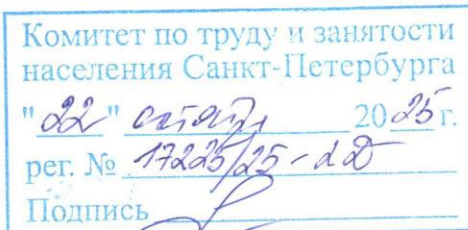 Комитет по труду и занятости
населения Санкт-Петербурга
"22" 2025 г.
рег. № 17225/25-
Подпись